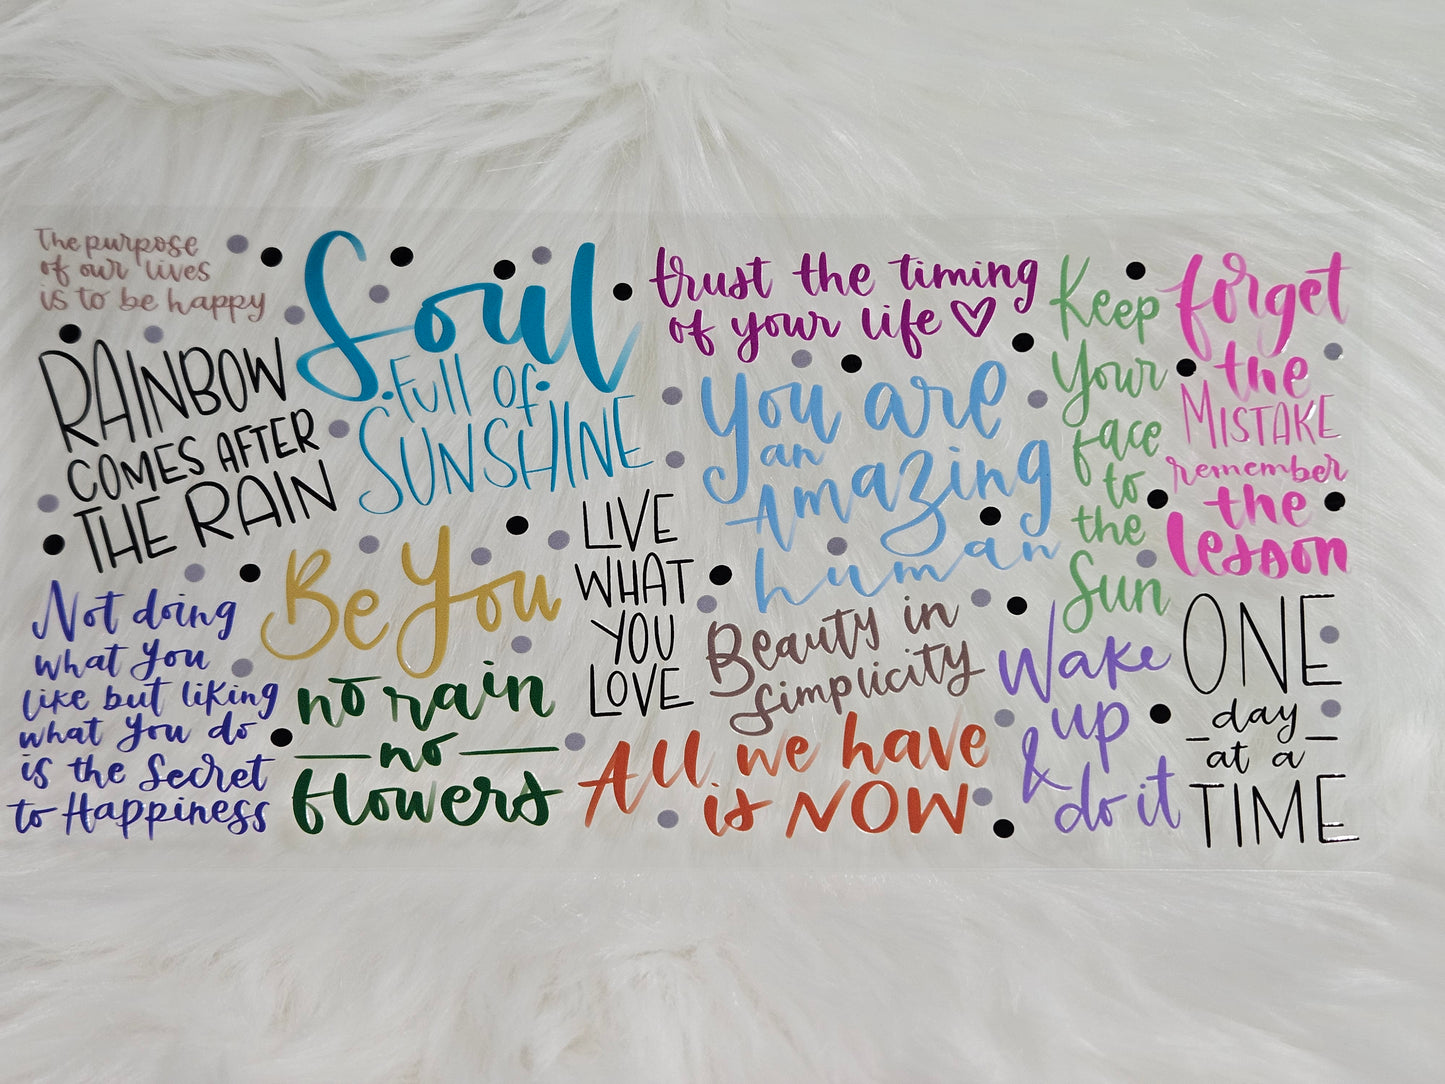 The purpose
of our lives
is to be happy
RAINBOW
COMES AFTER
THE RAIN
Soul
Full of
SUNSHINE
trust the timing
of your life
You are
an
Amazing
human
Keep
Your
face
to
the
Sun
forget
the
MISTAKE
remember
the
lesson
Not doing
what you
like but liking
what you do
is the Secret
to Happiness
Be You
no rain
no
flowers
LIVE
WHAT
YOU
LOVE
Beauty in
Simplicity
All we have
is NOW
Wake
up
& do it
ONE
day
at a
TIME